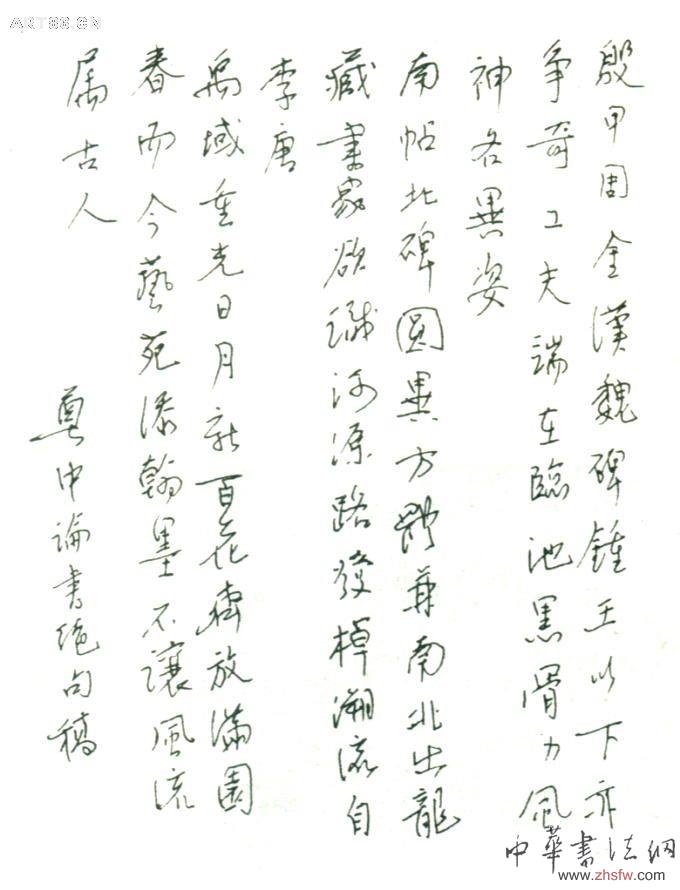 殷甲周金漢魏碑鍾王以下亦
争奇工夫端在臨池黑骨力風
神各異姿
南帖北碑圓異方能兼南北出龍
藏書家欲識河源路發棹溯流自
李唐
禹域重光日月新百花齊放滿園
春而今藝苑添翰墨不讓風流
屬古人
中論書絕句稿
中華書法網
www.zhsfw.com